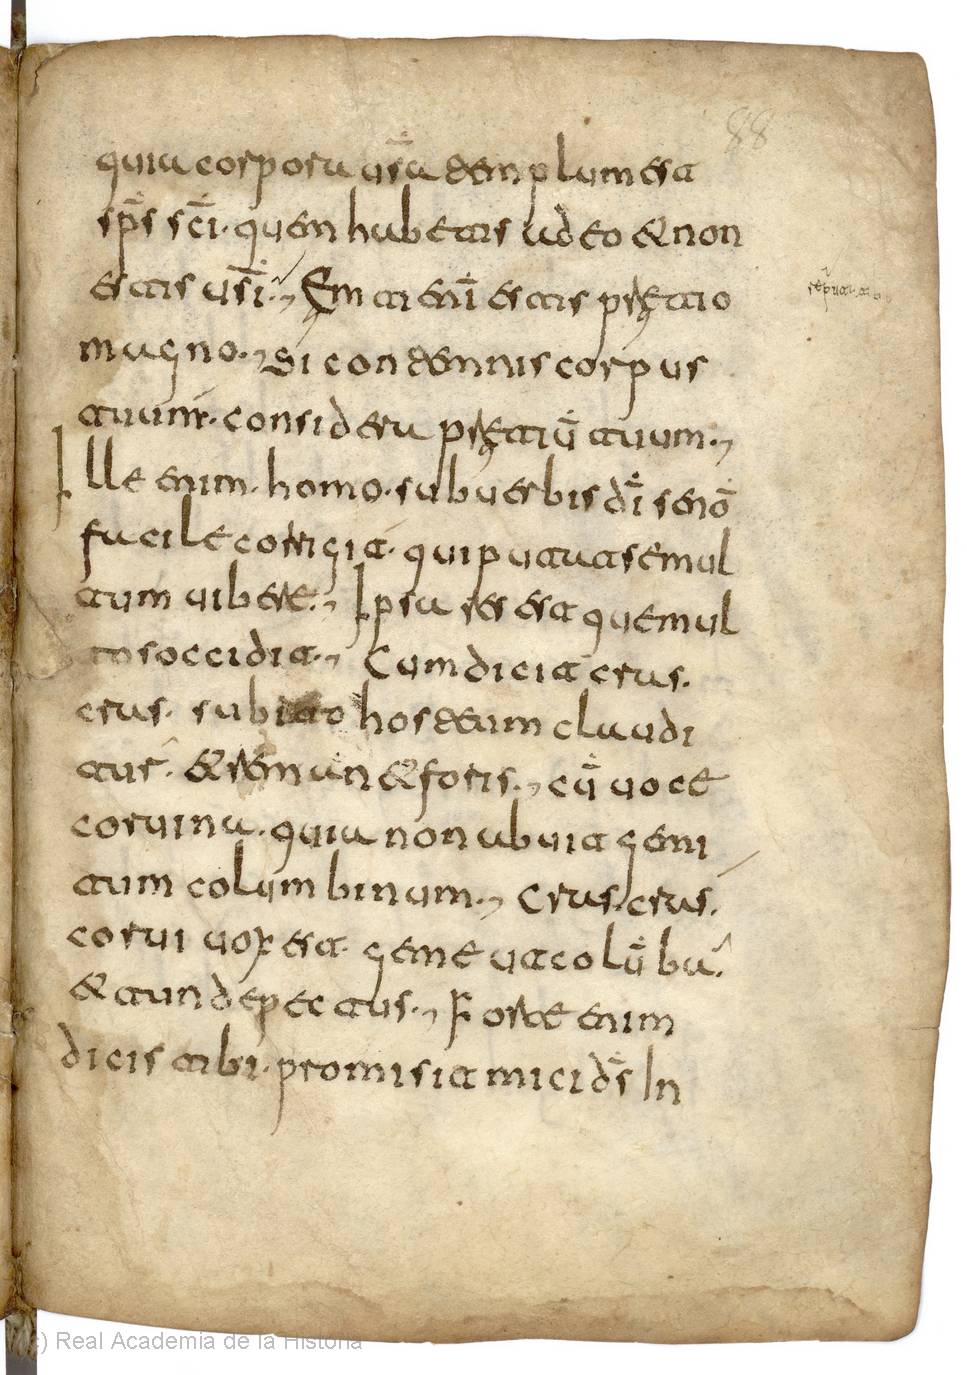 88
quia corpora ur̄a demplum est
sp̄s sc̄i· quem habetis ad eo & non
estis us̄i· Emti enī estis pretio
magno· Si contemnis corpus
tuum· considera pretiū tuum·
Ille enim· homo· sub verbis dī senō
facile corrigit· qui putat se mul
tum vibere· Ipsa res est que mul
tos occidit· Cum dicit cras·
cras· subito hosteum claudi
tur· & reman& foris· cū voce
corvina· quia non abuit gemi
tum columbinum· Cras· cras·
corvi vox est· geme ut colūba·
& tunde pectus· Forte enim
dicis tibi· promisit mici ds̄ In
(c) Real Academia de la Historia